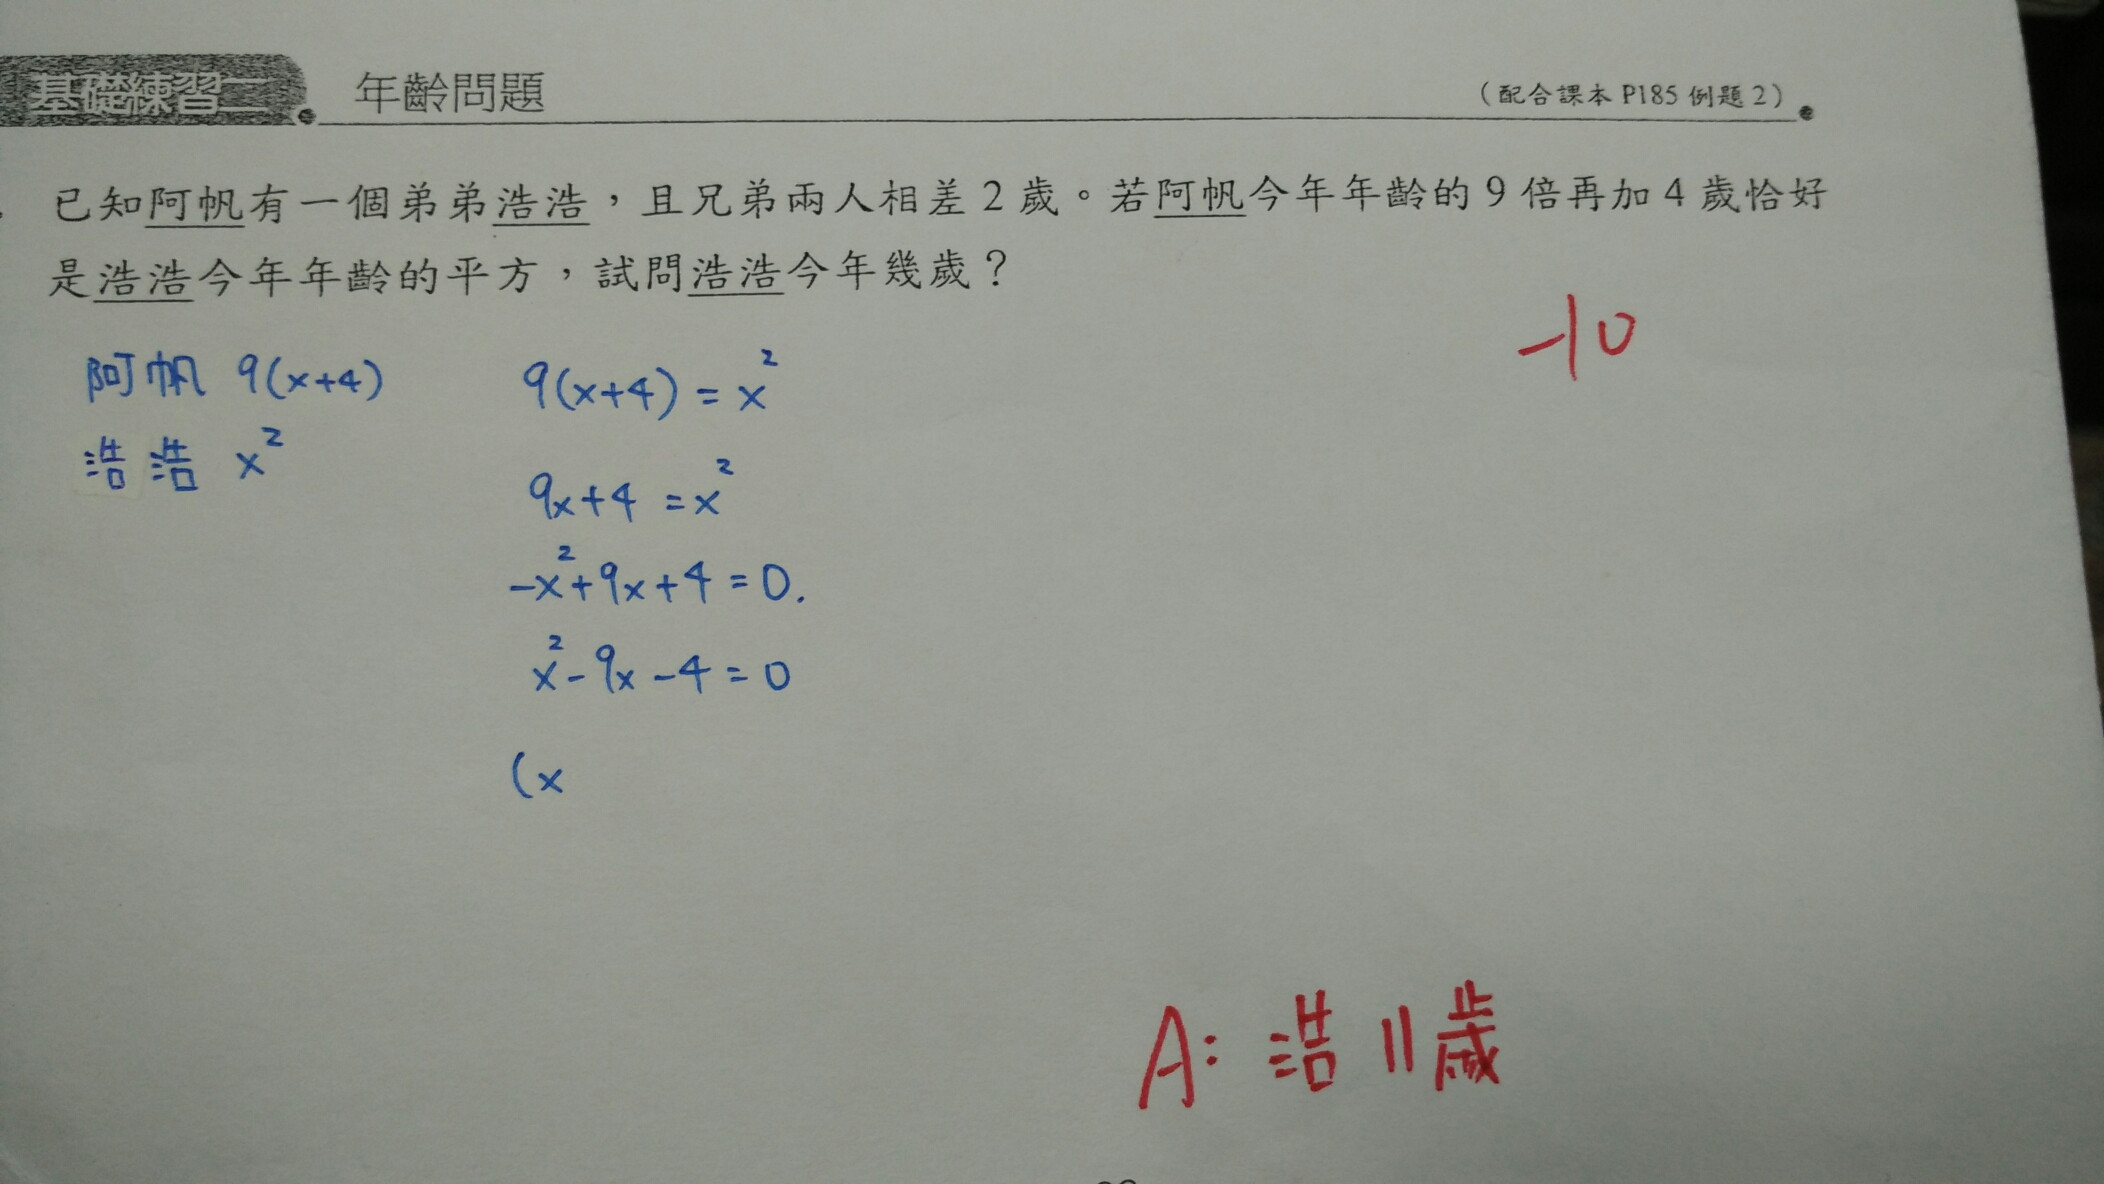 基礎練習二 年齡問題 （配合課本 P185 例題 2）
已知阿帆有一個弟弟浩浩，且兄弟兩人相差 2 歲。若阿帆今年年齡的 9 倍再加 4 歲恰好
是浩浩今年年齡的平方，試問浩浩今年幾歲？
-10
阿帆 9(x+4) 9(x+4) = x²
浩浩 x²
9x+4 = x²
-x²+9x+4=0.
x²-9x-4=0
(x
A: 浩 11歲